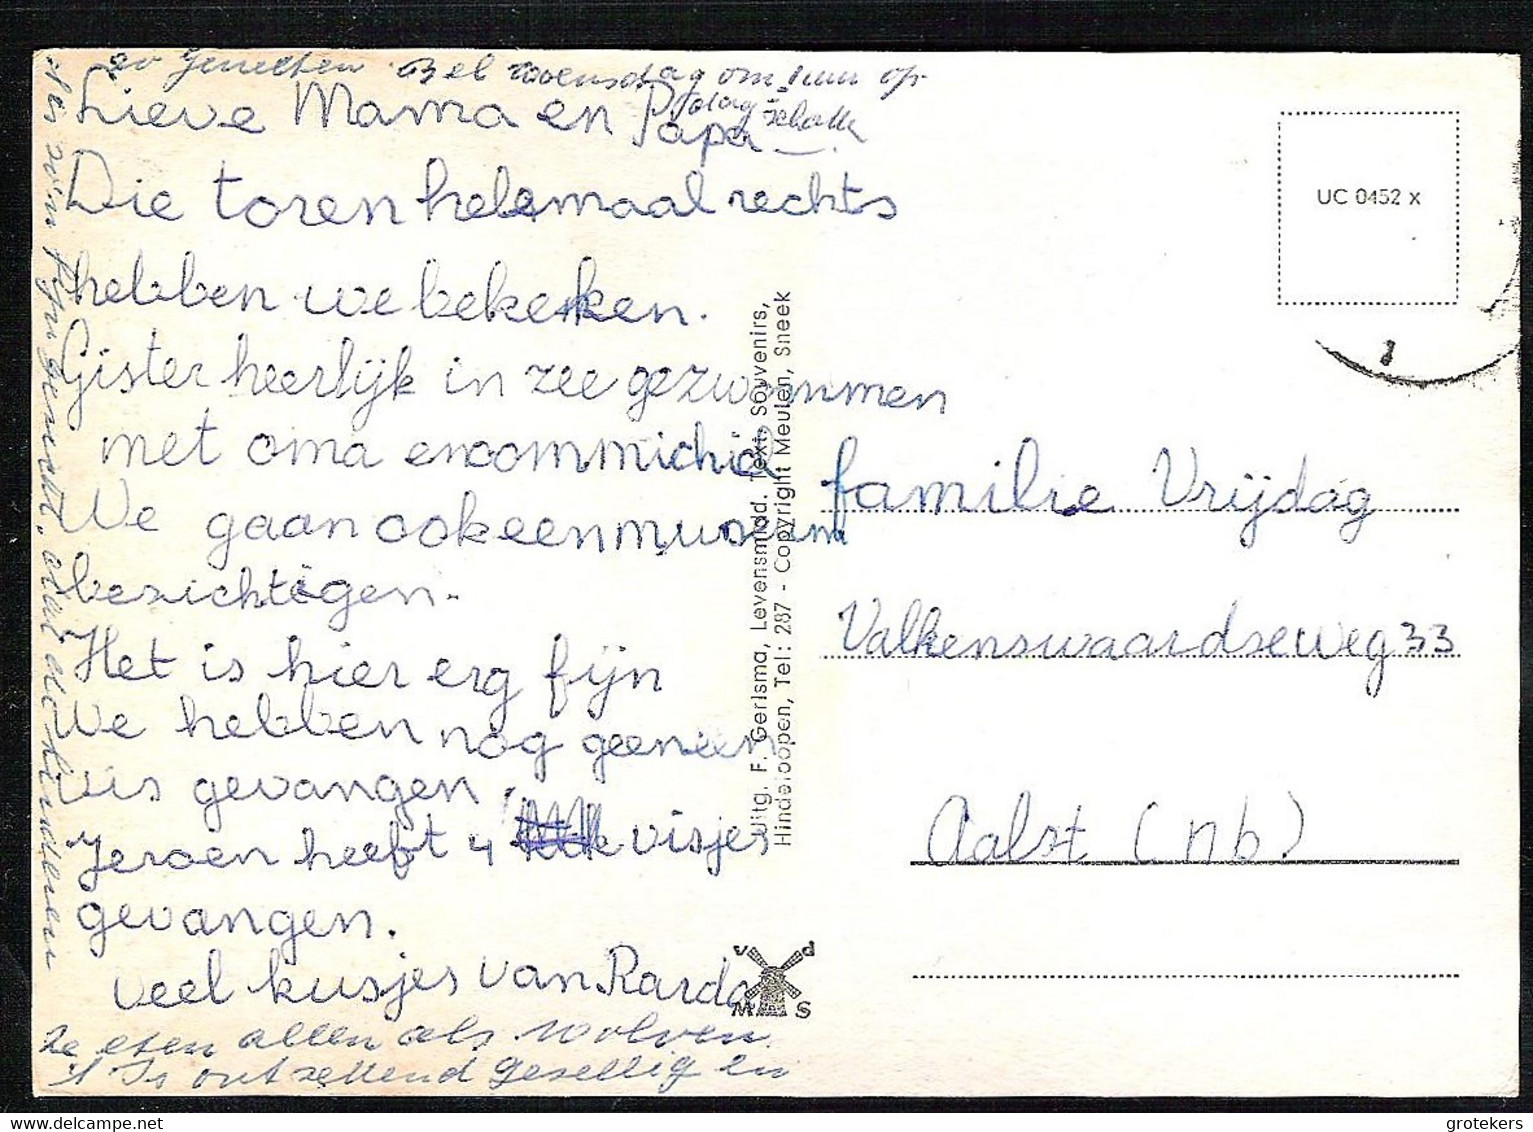 zo genieten. Bel woensdag om 1 uur op
dag
Lieve Mama en Papa
Die toren helemaal rechts
hebben we bekeken.
Gister heerlijk in zee gezwommen
met oma en oom michiel
We gaan ook een museum
bezichtigen.
Het is hier erg fijn
We hebben nog geeneen
vis gevangen.
Jeroen heeft 4 visjes
gevangen.
veel kusjes van Rarda
Ze eten allen als wolven.
't Is ontzettend gezellig en
fijn dat de kinderen
UC 0452 x
familie Vrijdag
Valkenswaardseweg 33
Aalst (nb)
Uitg. F. Gerlsma, Levensmidd. Text. Souvenirs,
Hindeloopen, Tel: 287 - Copyright Meulen, Sneek
v d
M S
www.delcampe.net
grotekers